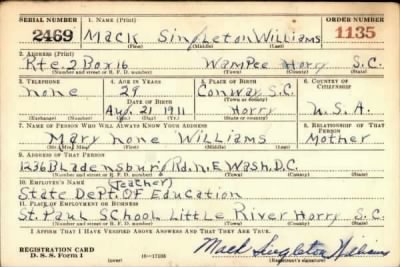 SERIAL NUMBER 1. NAME (Print) ORDER NUMBER
2469 Mack Singleton Williams 1135
(First) (Middle) (Last)
2. ADDRESS (Print)
Rte. 2 Box 16 Wampee Horry S.C.
(Number and street or R. F. D. number) (Town) (County) (State)
3. TELEPHONE 4. AGE IN YEARS 5. PLACE OF BIRTH 6. COUNTRY OF CITIZENSHIP
none 29 Conway S.C.
DATE OF BIRTH (Town or county)
Aug. 21 1911 Horry U.S.A.
(Exchange) (Number) (Mo.) (Day) (Yr.) (State or country)
7. NAME OF PERSON WHO WILL ALWAYS KNOW YOUR ADDRESS 8. RELATIONSHIP OF THAT PERSON
Mary none Williams Mother
(Mr., Mrs., Miss) (First) (Middle) (Last)
9. ADDRESS OF THAT PERSON
1236 Bladensburg Rd. N.E Wash. D.C.
(Number and street or R. F. D. number) (Town) (County) (State)
10. EMPLOYER'S NAME (Teacher)
State Dept. Of Education
11. PLACE OF EMPLOYMENT OR BUSINESS
St. Paul School Little River Horry S.C.
(Number and street or R. F. D. number) (Town) (County) (State)
I AFFIRM THAT I HAVE VERIFIED ABOVE ANSWERS AND THAT THEY ARE TRUE.
REGISTRATION CARD
D. S. S. Form 1 (over) Mack Singleton Williams
(Registrant's signature)